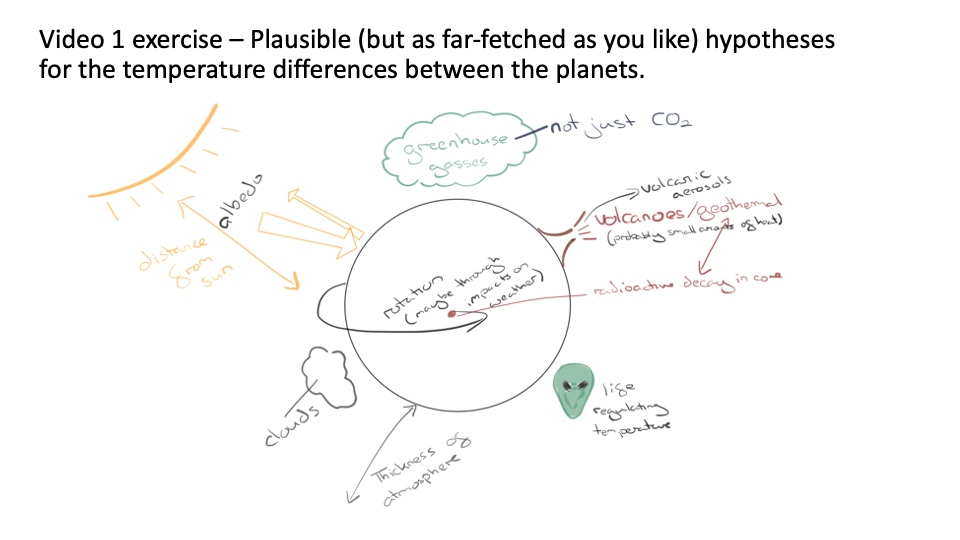 Video 1 exercise – Plausible (but as far-fetched as you like) hypotheses
for the temperature differences between the planets.
greenhouse
gasses
not just CO2
albedo
distance
from
sun
volcanic
aerosols
volcanoes/geothermal
(probably small amounts of heat)
radioactive decay in core
rotation
(maybe through
impacts on
weather)
clouds
Thickness of
atmosphere
life
regulating
temperature